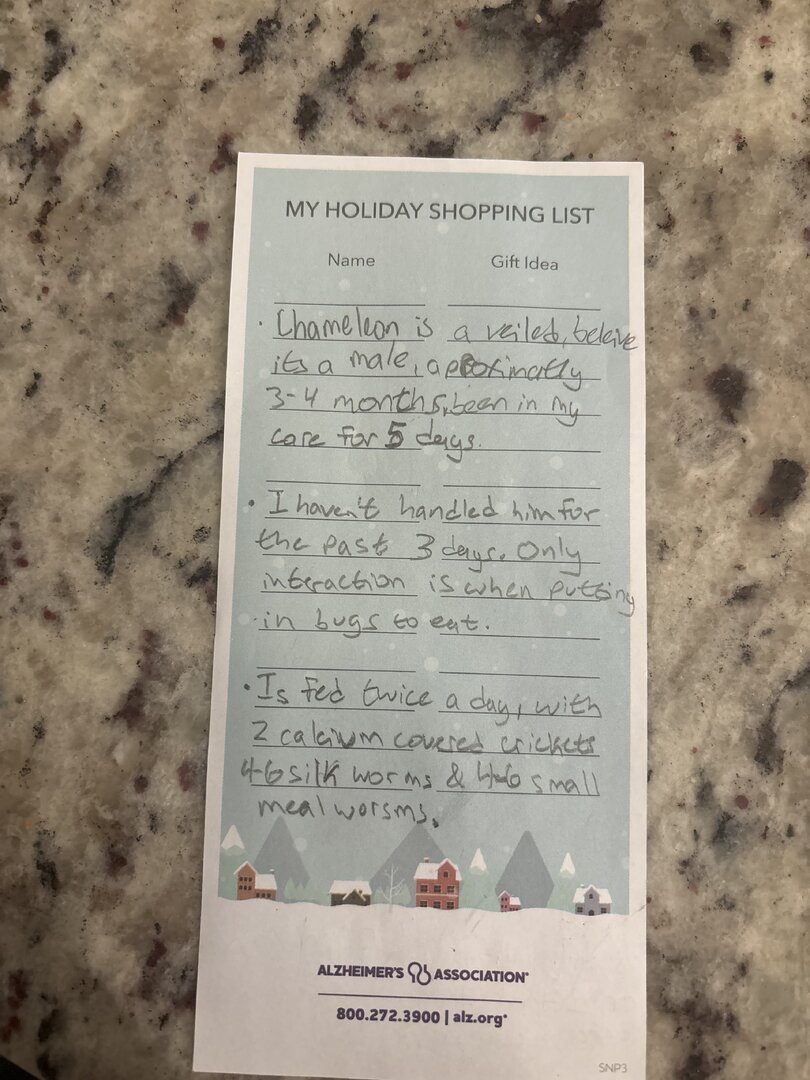 MY HOLIDAY SHOPPING LIST
Name Gift Idea
· Chameleon is a veiled, beleive
its a male, aproximatly
3-4 months, been in my
care for 5 days.
· I haven't handled him for
the past 3 days. Only
interaction is when putting
in bugs to eat.
· Is fed twice a day, with
2 calcium covered crickets
4-6 silk worms & 4-6 small
meal worsms.
ALZHEIMER'S ASSOCIATION®
800.272.3900 | alz.org®
SNP3